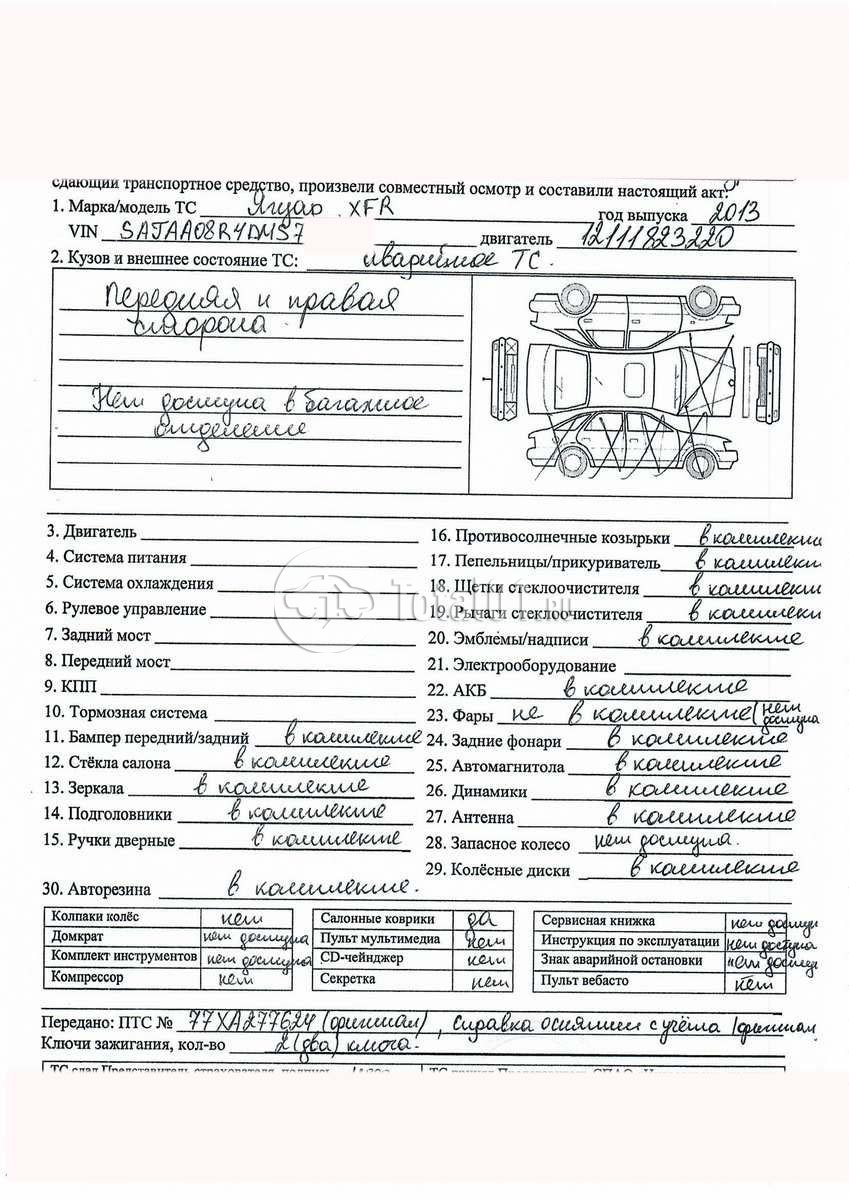 сдающий транспортное средство, произвели совместный осмотр и составили настоящий акт:
1. Марка/модель ТС Ягуар XFR год выпуска 2013
VIN SAJAA08R4DMS7 двигатель 12111823220
2. Кузов и внешнее состояние ТС: аварийное ТС.
Передняя и правая
сторона.
Нет доступа в багажное
отделение
3. Двигатель
4. Система питания
5. Система охлаждения
6. Рулевое управление
7. Задний мост
8. Передний мост
9. КПП
10. Тормозная система
11. Бампер передний/задний в комплекте
12. Стёкла салона в комплекте
13. Зеркала в комплекте
14. Подголовники в комплекте
15. Ручки дверные в комплекте
16. Противосолнечные козырьки в комплекте
17. Пепельницы/прикуриватель в комплекте
18. Щетки стеклоочистителя в комплекте
19. Рычаги стеклоочистителя в комплекте
20. Эмблемы/надписи в комплекте
21. Электрооборудование
22. АКБ в комплекте
23. Фары не в комплекте (нет доступа
24. Задние фонари в комплекте
25. Автомагнитола в комплекте
26. Динамики в комплекте
27. Антенна в комплекте
28. Запасное колесо нет доступа.
29. Колёсные диски в комплекте
30. Авторезина в комплекте.
Total01.ru
Колпаки колёс нет
Домкрат нет доступа
Комплект инструментов нет доступа
Компрессор нет
Салонные коврики да
Пульт мультимедиа нет
CD-чейнджер нет
Секретка нет
Сервисная книжка нет доступа
Инструкция по эксплуатации нет доступа
Знак аварийной остановки нет доступа
Пульт вебасто нет
Передано: ПТС № 77ХА277624 (оригинал), справка о снятии с учёта /оригинал
Ключи зажигания, кол-во 2 (два) ключа.